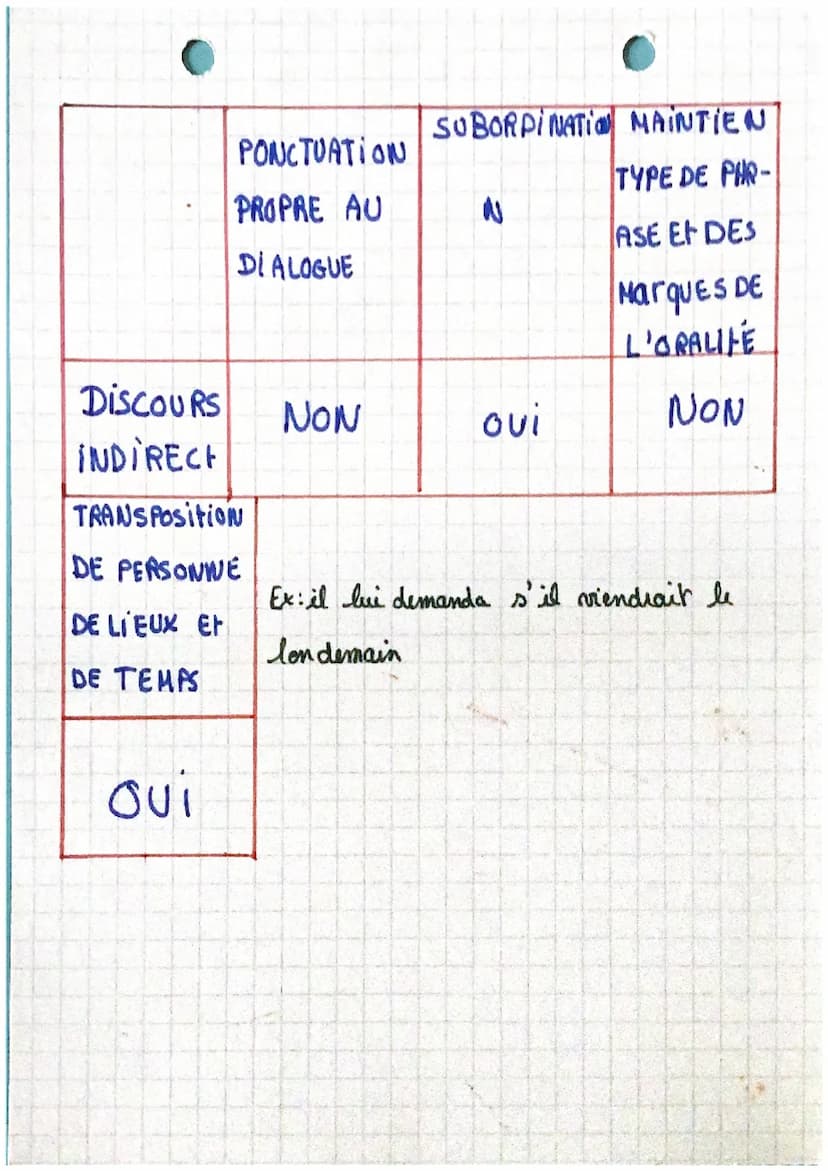 PONCTUATION
PROPRE AU
DIALOGUE
SUBORDINATIO
N
MAINTIEN
TYPE DE PHR-
ASE Et DES
MarQUES DE
L'ORALItÉ
DISCOURS
INDIRECt
NON
OUI
NON
TRANSPOSItION
DE PERSONNE
DE LIEUX Et
DE TEMPS
OUI
Ex: il lui demanda s'il viendrait le
londemain